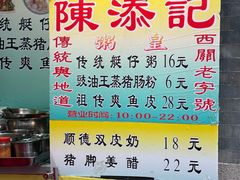 陳添記
傳統與地道
粥皇
西關老字號
传统艇仔粥16元
豉油王蒸猪肠粉6元
祖传爽鱼皮28元
营业时间:10:00-22:00
顺德双皮奶 18元
猪脚姜醋 22元